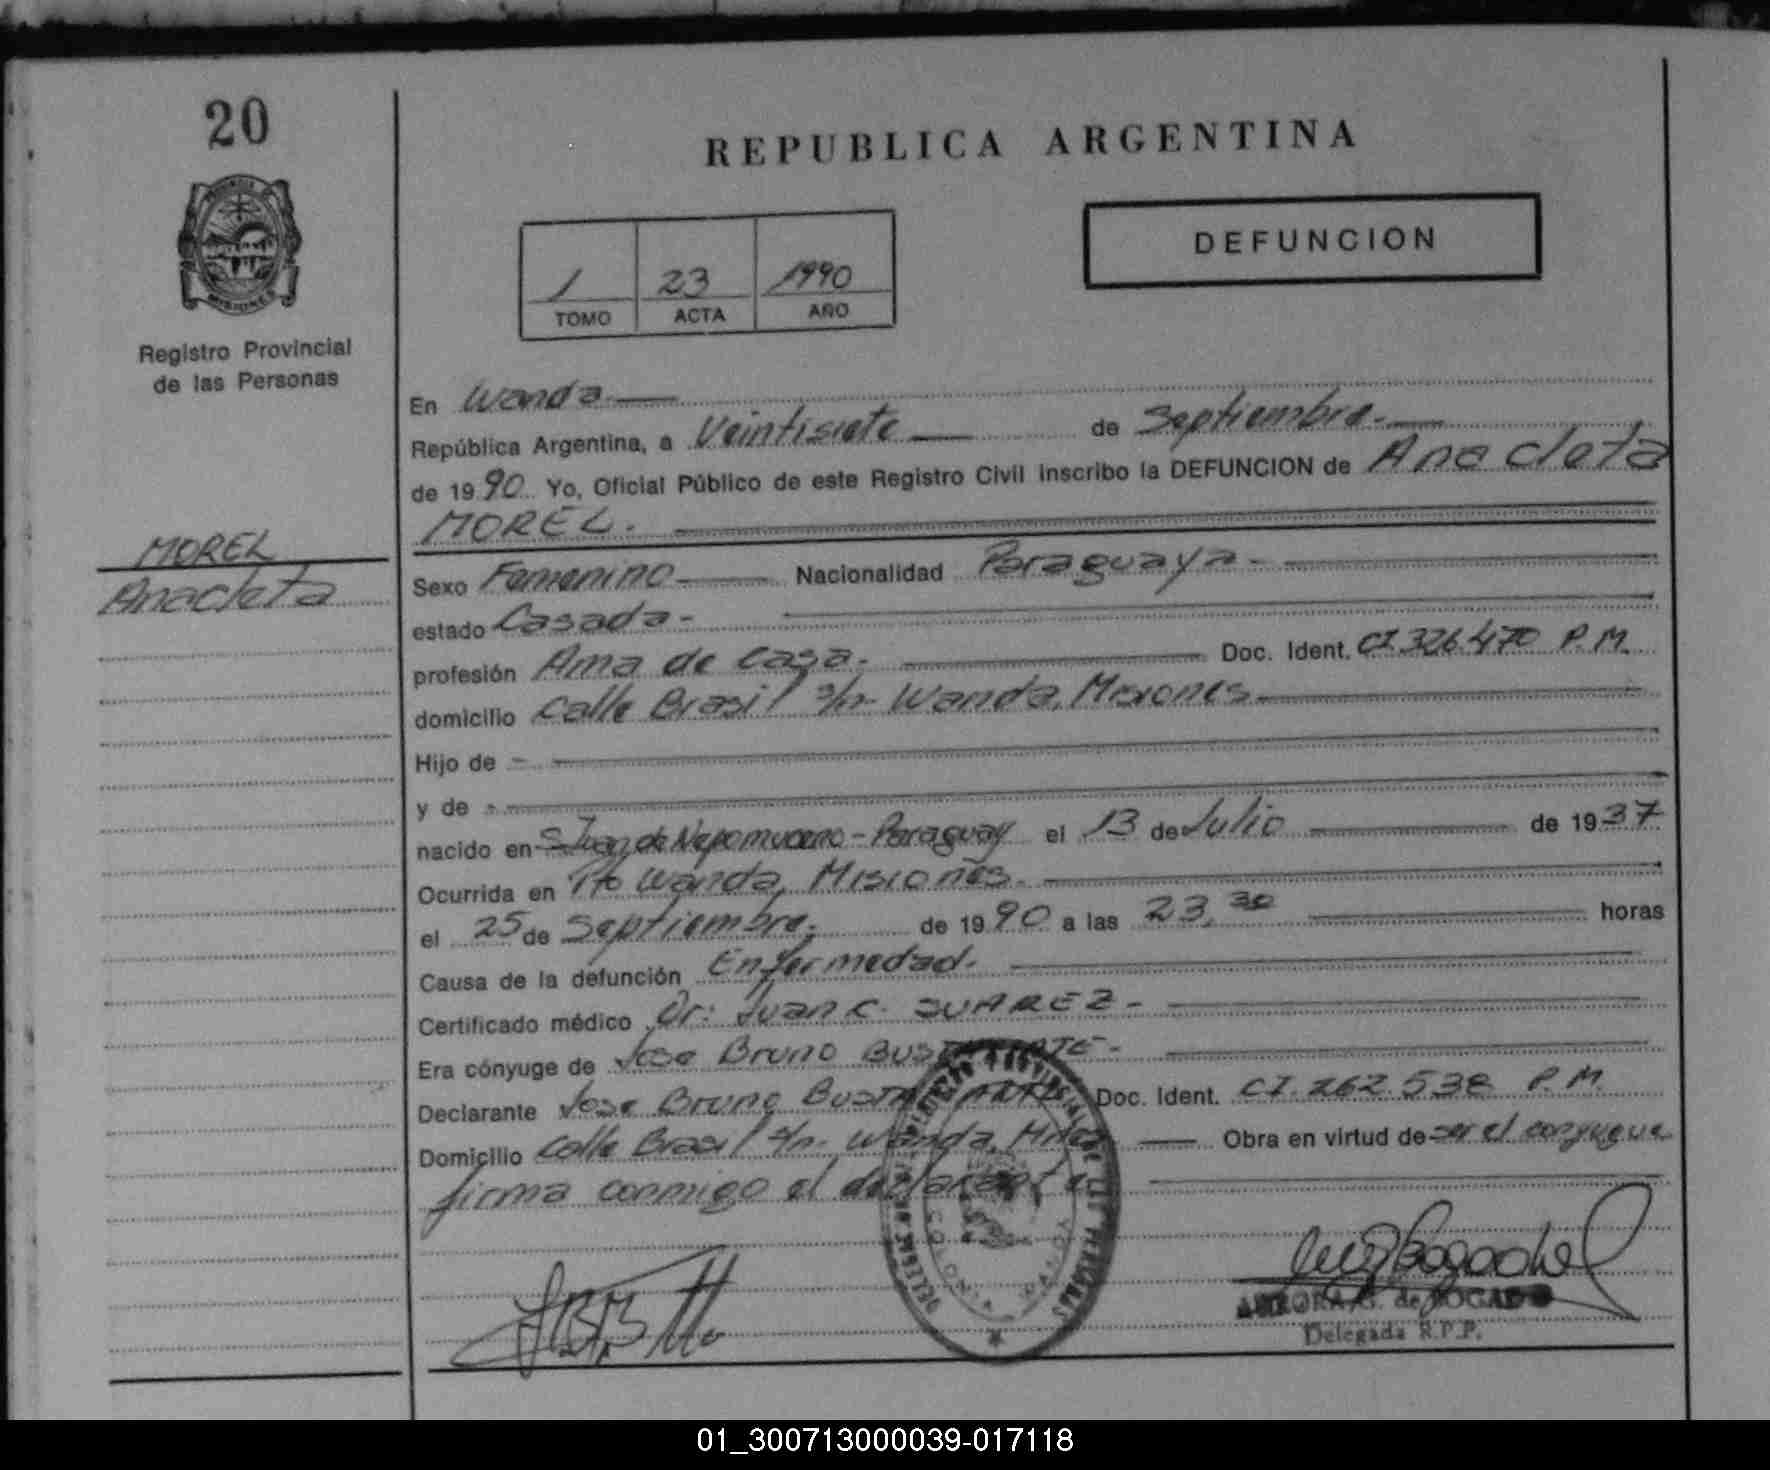 20
REPUBLICA ARGENTINA
DEFUNCION
1 23 1990
TOMO ACTA AÑO
MISIONES
Registro Provincial
de las Personas
MOREL
Anacleta
En Wanda.
República Argentina, a Veintisiete de Septiembre.
de 1990 Yo, Oficial Público de este Registro Civil inscribo la DEFUNCION de Anacleta
MOREL.
Sexo Femenino Nacionalidad Paraguaya-
estado Casada-
profesión Ama de casa. Doc. Ident. CI.326.470 P.M.
domicilio calle Brasil s/n- Wanda, Misiones
Hijo de -
y de -
nacido en S. Juan de Nepomuceno-Paraguay el 13 de Julio de 1937
Ocurrida en Pto Wanda, Misiones.
el 25 de Septiembre. de 1990 a las 23,30 horas
Causa de la defunción Enfermedad.
Certificado médico Dr: Juan C. SUAREZ-
Era cónyuge de Jose Bruno BUSTAMANTE-
Declarante Jose Bruno BUSTAMANTE Doc. Ident. CI. 262.538 P.M.
Domicilio calle Brasil s/n. Wanda, Mnes Obra en virtud de ser el conyugue
firma conmigo el declarante
COLONIA WANDA
AURORA G. de BOGADO
Delegada R.P.P.
01_300713000039-017118